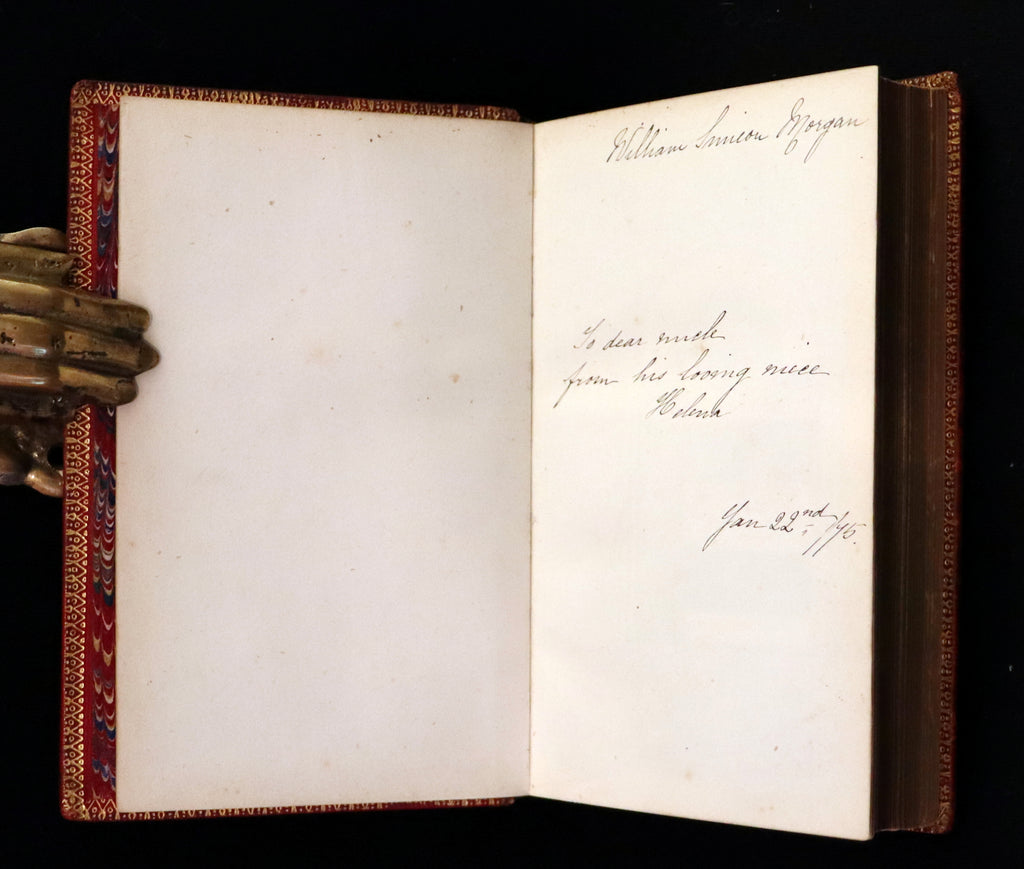 William Simeon Morgan
To dear uncle
from his loving niece
Helena
Jan 22nd /75.